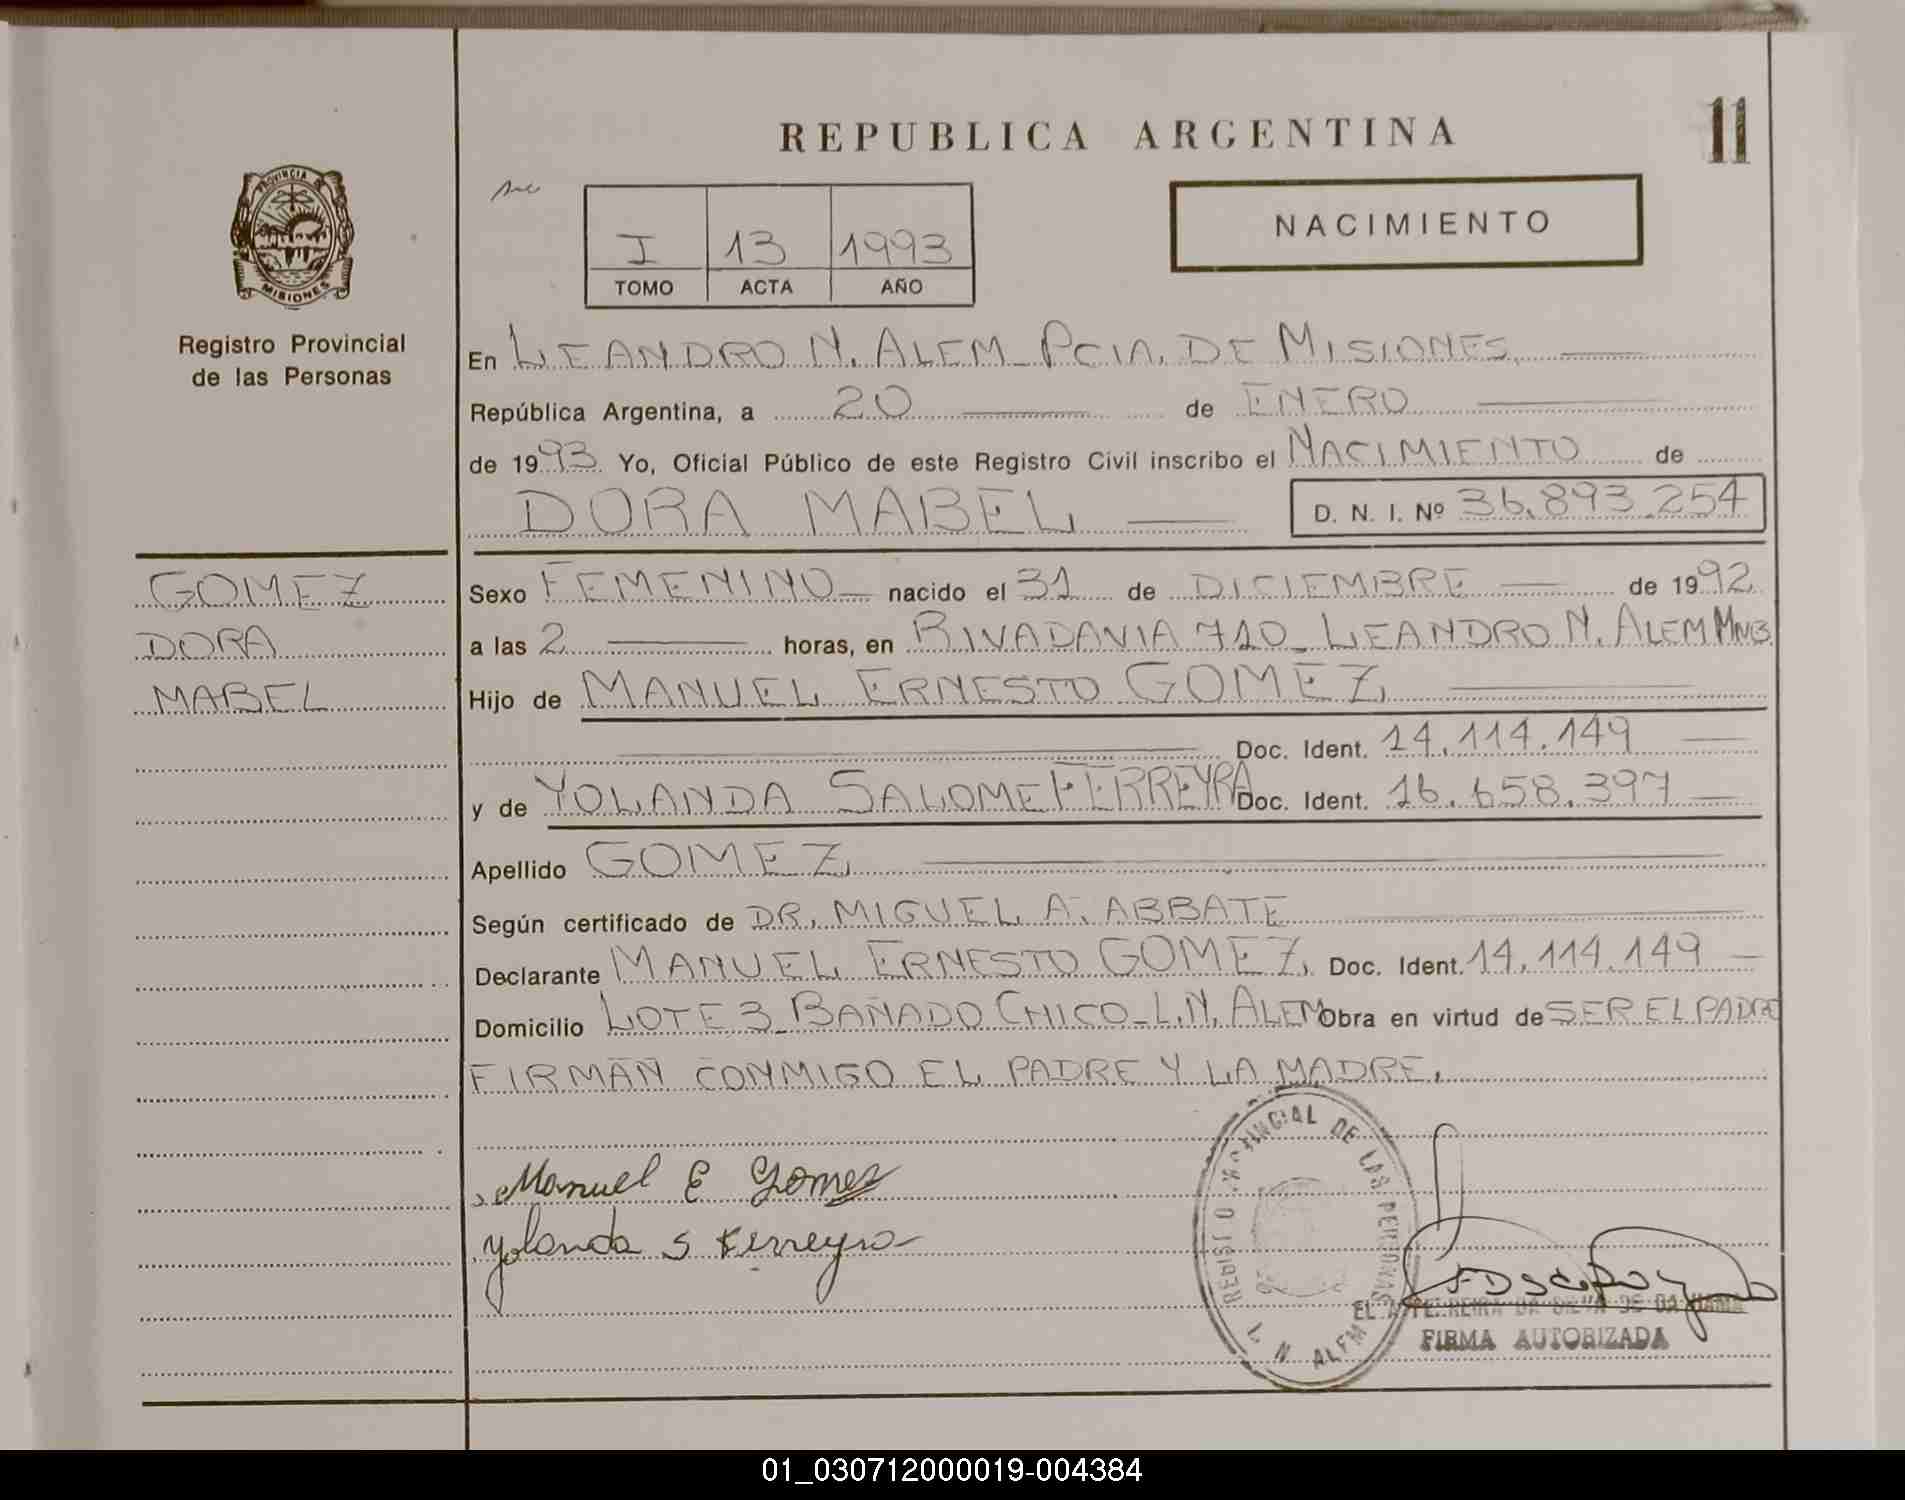 REPUBLICA ARGENTINA
11
PROVINCIA
MISIONES
Registro Provincial
de las Personas
I 13 1993
TOMO ACTA AÑO
NACIMIENTO
En LEANDRO N. ALEM_PCIA. DE MISIONES,
República Argentina, a 20 de ENERO
de 1993 Yo, Oficial Público de este Registro Civil inscribo el NACIMIENTO de
DORA MABEL
D. N. I. Nº 36.893.254
GOMEZ
DORA
MABEL
Sexo FEMENINO nacido el 31 de DICIEMBRE de 1992
a las 2 horas, en RIVADAVIA 710_LEANDRO N. ALEM Mns.
Hijo de MANUEL ERNESTO GOMEZ,
Doc. Ident. 14.114.149
y de YOLANDA SALOME FERREYRA Doc. Ident. 16.658.397
Apellido GOMEZ,
Según certificado de DR. MIGUEL A. ABBATE
Declarante MANUEL ERNESTO GOMEZ, Doc. Ident. 14.114.149
Domicilio LOTE 3_BAÑADO CHICO_L.N. ALEM Obra en virtud de SER EL PADRE
FIRMAN CONMIGO EL PADRE Y LA MADRE.
Manuel E Gomez
Yolanda S Ferreyra
REGISTRO PROVINCIAL DE LAS PERSONAS
L N ALEM
FIRMA AUTORIZADA
01_030712000019-004384